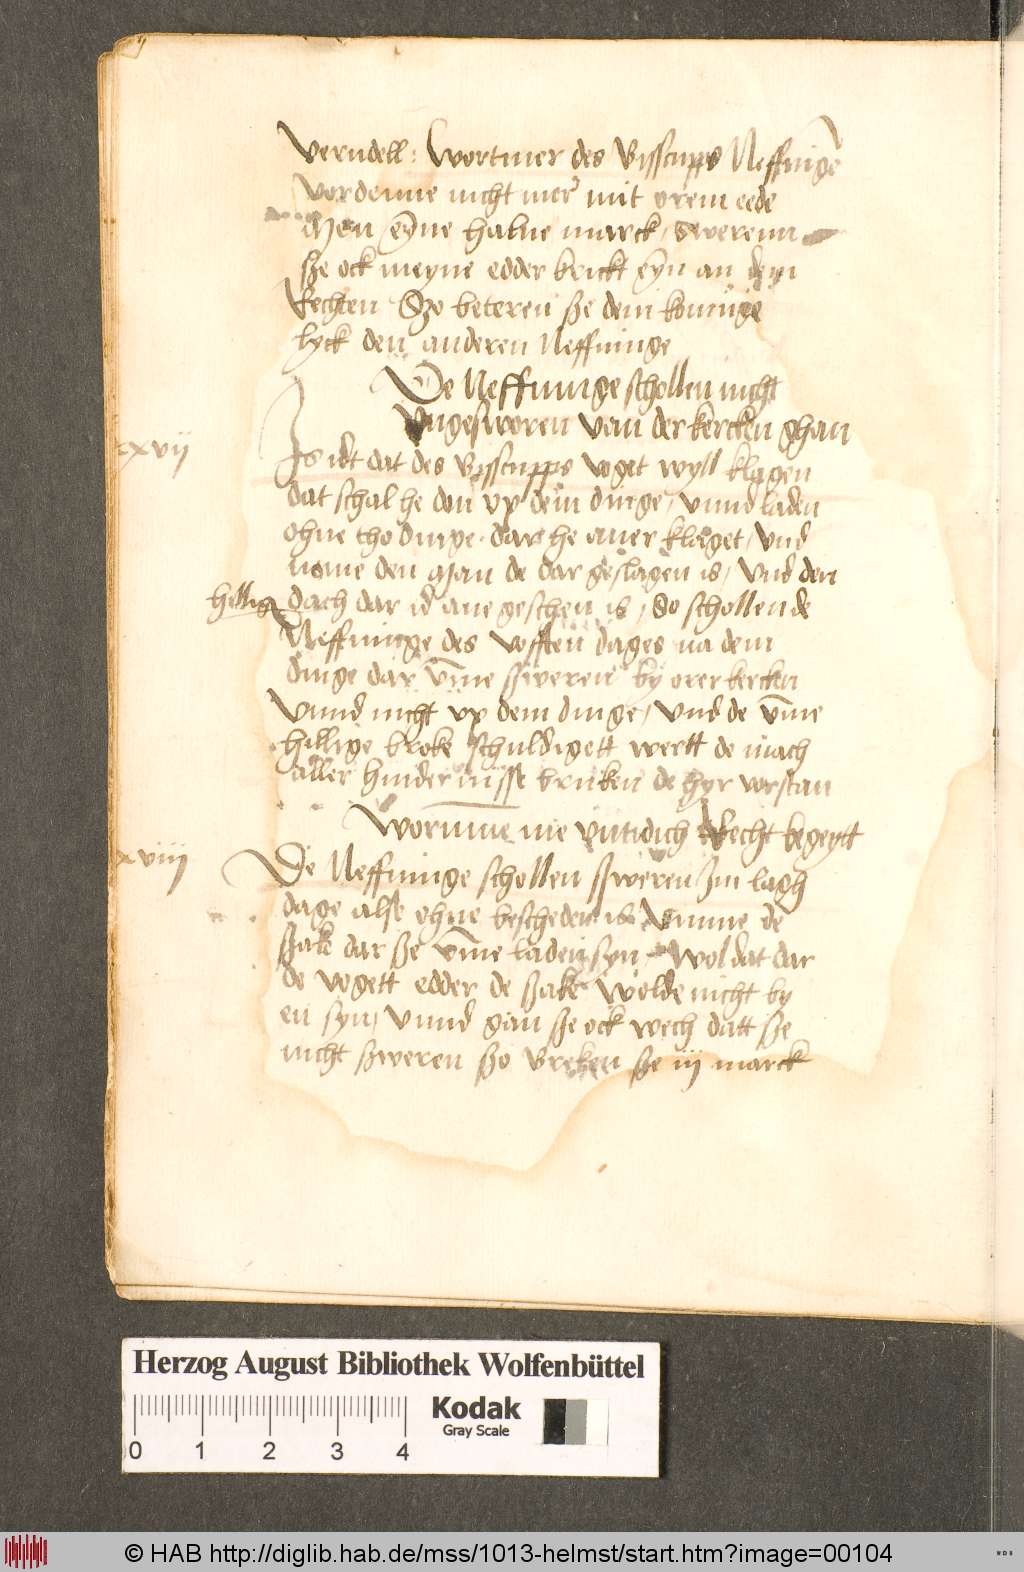 verndell: wortmer des Bisscupps Neffninge
vordenne nicht mer mit orem eede
Men eyne halue marck, Swerenn
ße ock meyne edder brickt eyn an dem
Rechten Szo beteren ße dem koninge
lyck den anderen Neffninge
De Neffninge schollen nicht
vngesworen van der kercken ghan
xvij
Is idt dat des Bisscupps voget wyll klagen
dat schal he don vp dem dinge, vnnd laden
ohne tho dinge dar he auer klaget, vnd
nome den Man de dar geslagen is, vnd den
hillig
dach dar id ane geschen is, So schollen de
Neffninge des vofften dages na dem
dinge dar vmme ssweren by orer kercken
Vnnd nicht vp dem dinge, vnd de vmme
hillige broke schuldigett wertt de mach
aller hindernisse bruken de hyr vorstan
Worumme nie vntidich Recht begeytt
xviij
De Neffninge schollen ssweren Im lagh
dage alse ohne bescheden is vmme de
ssake dar ße vmme laden syn, Wol dat dar
de vogett edder de ssake wolde nicht by
en syn, vnnd gan ße ock wech datt ße
nicht szweren szo Breken ße iij marck
Herzog August Bibliothek Wolfenbüttel
Kodak
Gray Scale
0 1 2 3 4
© HAB http://diglib.hab.de/mss/1013-helmst/start.htm?image=00104